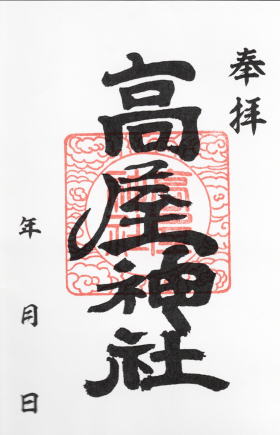 奉拝
高座神社
年月日